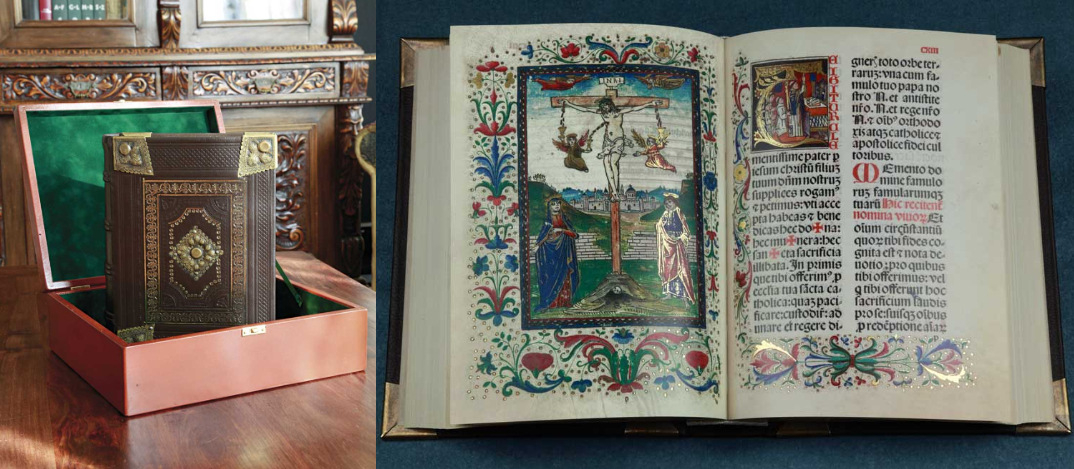 INRI
mentissime pater p
iesum christū filiū
tuum dn̄m nostrū
supplices rogam⁹
& petimus: vti acce
pta habeas & bene
dicas hec do✠na:
hec mu✠nera: hec
san✠cta sacrificia
illibata. In primis
que tibi offerim⁹ p
ecclīa tua sācta ca-
tholica: quaꝫ paci-
ficare: custodir̄: ad
unare et regere di-
gneꝝ toto orbe ter-
raruꝫ: vna cum fa-
mulo tuo papa no
stro N. et antistite
nr̄o. N. et rege nr̄o
N. & oīb⁹ orthodo
xis atqꝫ catholice ⁊
apostolice fidei cul
toribus.
Memento do
mine famulo
ruꝫ famularumqꝫ
tuarū Hic recitent̄
nomina viuoꝝ Et
oīum circūstantiū
quoꝝ tibi fides co-
gnita est & nota de-
uotio: pro quibus
tibi offerimus: vel
q tibi offerunt hoc
sacrificium laudis
pro se suisqꝫ oībus
p redēptione aīaꝝ